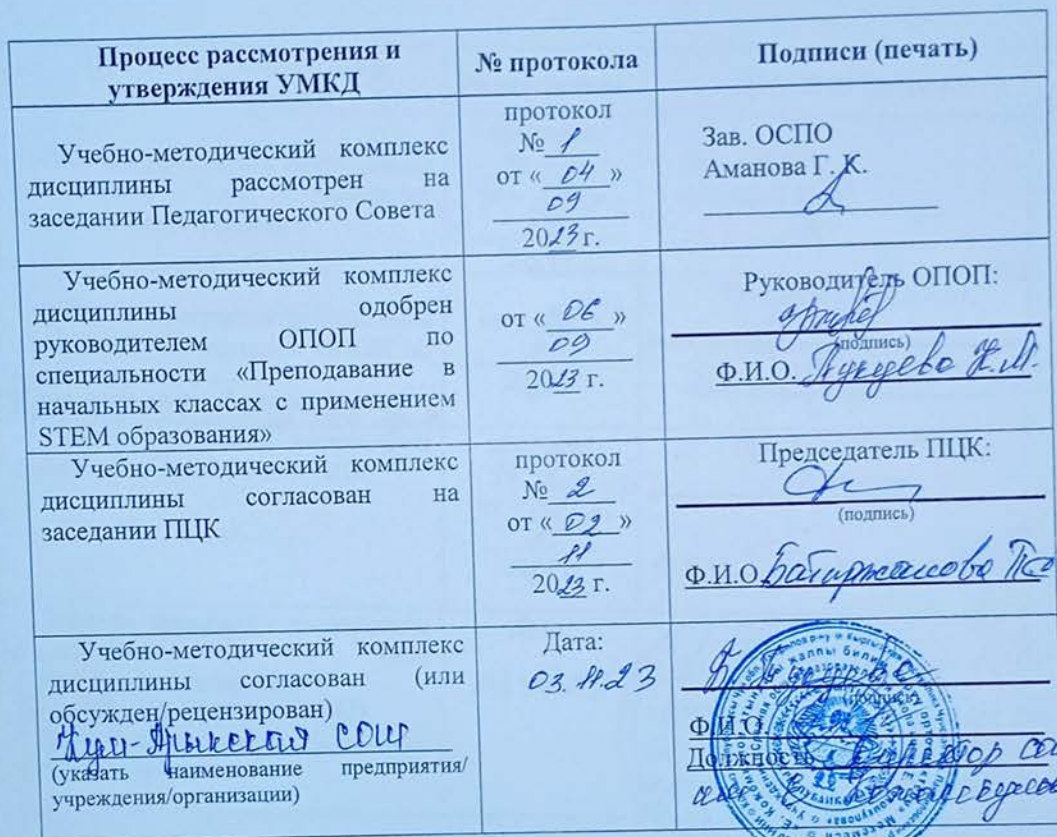 Процесс рассмотрения и
утверждения УМКД
№ протокола
Подписи (печать)
Учебно-методический комплекс
дисциплины рассмотрен на
заседании Педагогического Совета
протокол
№ 1
от « 04 »
09
2023 г.
Зав. ОСПО
Аманова Г. К.
Учебно-методический комплекс
дисциплины одобрен
руководителем ОПОП по
специальности «Преподавание в
начальных классах с применением
STEM образования»
от « 06 »
09
2023 г.
Руководитель ОПОП:
(подпись)
Ф.И.О.
Учебно-методический комплекс
дисциплины согласован на
заседании ПЦК
протокол
№ 2
от « 02 »
11
2023 г.
Председатель ПЦК:
(подпись)
Ф.И.О.
Учебно-методический комплекс
дисциплины согласован (или
обсужден/рецензирован)
СОШ
(указать наименование предприятия/
учреждения/организации)
Дата:
03.11.23
(подпись)
Ф.И.О.
Должность